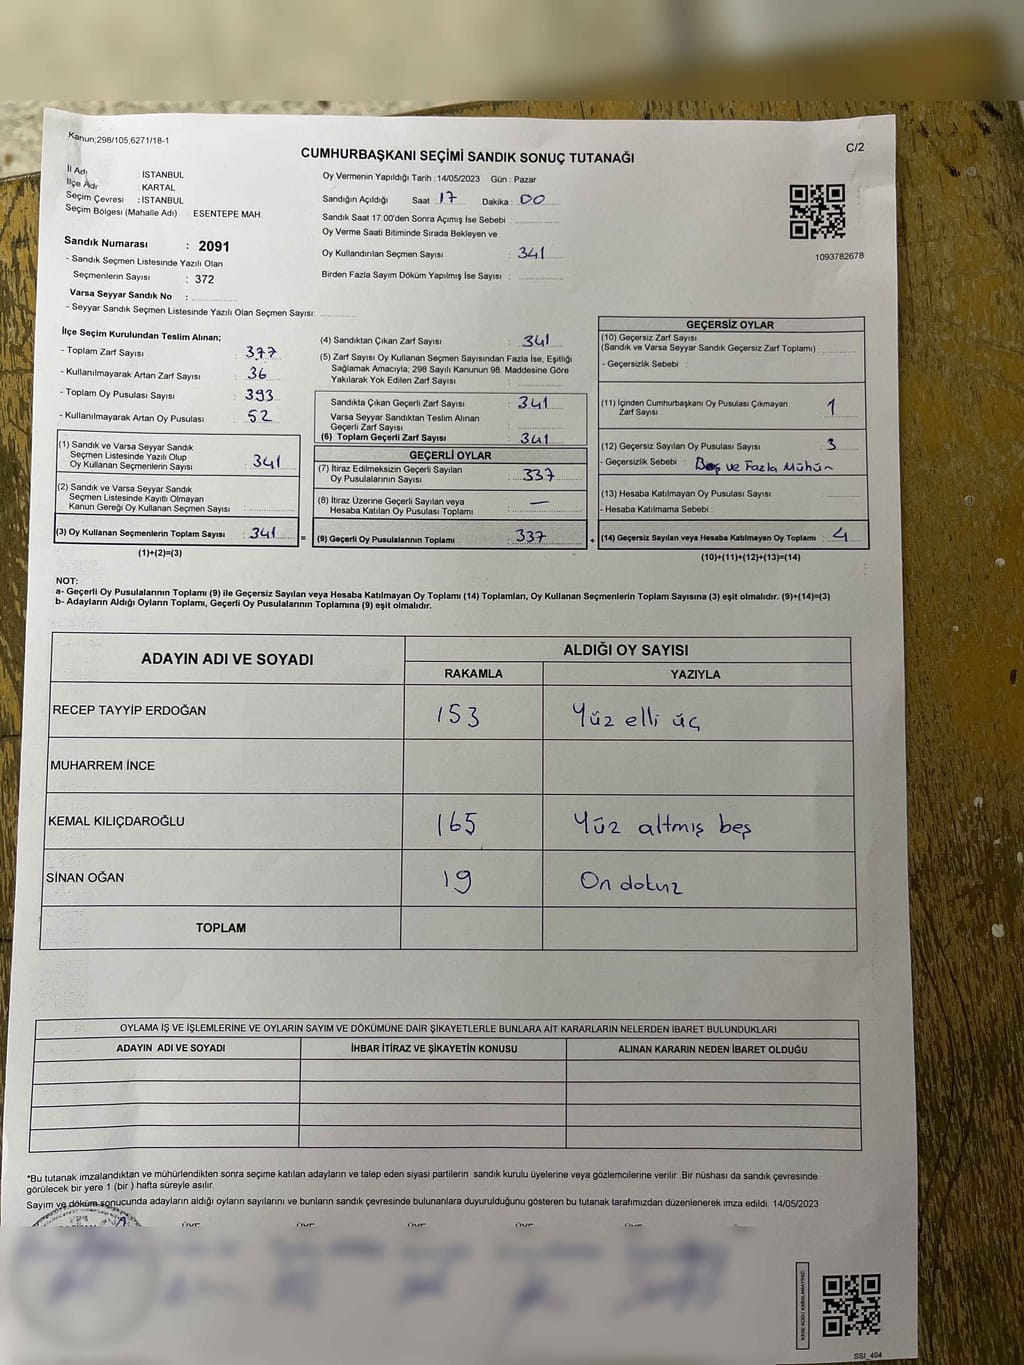 Kanun;298/105,6271/18-1
C/2
CUMHURBAŞKANI SEÇİMİ SANDIK SONUÇ TUTANAĞI
İl Adı : İSTANBUL
İlçe Adı : KARTAL
Seçim Çevresi : İSTANBUL
Seçim Bölgesi (Mahalle Adı) : ESENTEPE MAH.
Sandık Numarası : 2091
- Sandık Seçmen Listesinde Yazılı Olan
Seçmenlerin Sayısı : 372
Varsa Seyyar Sandık No :
- Seyyar Sandık Seçmen Listesinde Yazılı Olan Seçmen Sayısı:
Oy Vermenin Yapıldığı Tarih : 14/05/2023 Gün : Pazar
Sandığın Açıldığı Saat : 17 Dakika : 00
Sandık Saat 17:00'den Sonra Açımış İse Sebebi :
Oy Verme Saati Bitiminde Sırada Bekleyen ve
Oy Kullandırılan Seçmen Sayısı : 341
Birden Fazla Sayım Döküm Yapılmış İse Sayısı :
1093782678
İlçe Seçim Kurulundan Teslim Alınan;
- Toplam Zarf Sayısı : 377
- Kullanılmayarak Artan Zarf Sayısı : 36
- Toplam Oy Pusulası Sayısı : 393
- Kullanılmayarak Artan Oy Pusulası : 52
(1) Sandık ve Varsa Seyyar Sandık
Seçmen Listesinde Yazılı Olup
Oy Kullanan Seçmenlerin Sayısı : 341
(2) Sandık ve Varsa Seyyar Sandık
Seçmen Listesinde Kayıtlı Olmayan
Kanun Gereği Oy Kullanan Seçmen Sayısı :
(3) Oy Kullanan Seçmenlerin Toplam Sayısı : 341
(1)+(2)=(3)
(4) Sandıktan Çıkan Zarf Sayısı : 341
(5) Zarf Sayısı Oy Kullanan Seçmen Sayısından Fazla İse, Eşitliği
Sağlamak Amacıyla; 298 Sayılı Kanunun 98. Maddesine Göre
Yakılarak Yok Edilen Zarf Sayısı :
Sandıkta Çıkan Geçerli Zarf Sayısı : 341
Varsa Seyyar Sandıktan Teslim Alınan
Geçerli Zarf Sayısı :
(6) Toplam Geçerli Zarf Sayısı : 341
GEÇERLİ OYLAR
(7) İtiraz Edilmeksizin Geçerli Sayılan
Oy Pusulalarının Sayısı : 337
(8) İtiraz Üzerine Geçerli Sayılan veya
Hesaba Katılan Oy Pusulası Toplamı : —
= (9) Geçerli Oy Pusulalarının Toplamı : 337 +
GEÇERSİZ OYLAR
(10) Geçersiz Zarf Sayısı
(Sandık ve Varsa Seyyar Sandık Geçersiz Zarf Toplamı) :
- Geçersizlik Sebebi :
(11) İçinden Cumhurbaşkanı Oy Pusulası Çıkmayan
Zarf Sayısı : 1
(12) Geçersiz Sayılan Oy Pusulası Sayısı : 3
- Geçersizlik Sebebi : Boş ve Fazla Mühür
(13) Hesaba Katılmayan Oy Pusulası Sayısı :
- Hesaba Katılmama Sebebi :
(14) Geçersiz Sayılan veya Hesaba Katılmayan Oy Toplamı : 4
(10)+(11)+(12)+(13)=(14)
NOT:
a- Geçerli Oy Pusulalarının Toplamı (9) ile Geçersiz Sayılan veya Hesaba Katılmayan Oy Toplamı (14) Toplamları, Oy Kullanan Seçmenlerin Toplam Sayısına (3) eşit olmalıdır. (9)+(14)=(3)
b- Adayların Aldığı Oyların Toplamı, Geçerli Oy Pusulalarının Toplamına (9) eşit olmalıdır.
ADAYIN ADI VE SOYADI
ALDIĞI OY SAYISI
RAKAMLA YAZIYLA
RECEP TAYYİP ERDOĞAN 153 Yüz elli üç
MUHARREM İNCE
KEMAL KILIÇDAROĞLU 165 Yüz altmış beş
SİNAN OĞAN 19 On dokuz
TOPLAM
OYLAMA İŞ VE İŞLEMLERİNE VE OYLARIN SAYIM VE DÖKÜMÜNE DAİR ŞİKAYETLERLE BUNLARA AİT KARARLARIN NELERDEN İBARET BULUNDUKLARI
ADAYIN ADI VE SOYADI İHBAR İTİRAZ VE ŞİKAYETİN KONUSU ALINAN KARARIN NEDEN İBARET OLDUĞU
*Bu tutanak imzalandıktan ve mühürlendikten sonra seçime katılan adayların ve talep eden siyasi partilerin sandık kurulu üyelerine veya gözlemcilerine verilir .Bir nüshası da sandık çevresinde
görülecek bir yere 1 (bir ) hafta süreyle asılır.
Sayım ve döküm sonucunda adayların aldığı oyların sayılarını ve bunların sandık çevresinde bulunanlara duyurulduğunu gösteren bu tutanak tarafımızdan düzenlenerek imza edildi. 14/05/2023
ÜYE ÜYE ÜYE ÜYE ÜYE
SSI_404